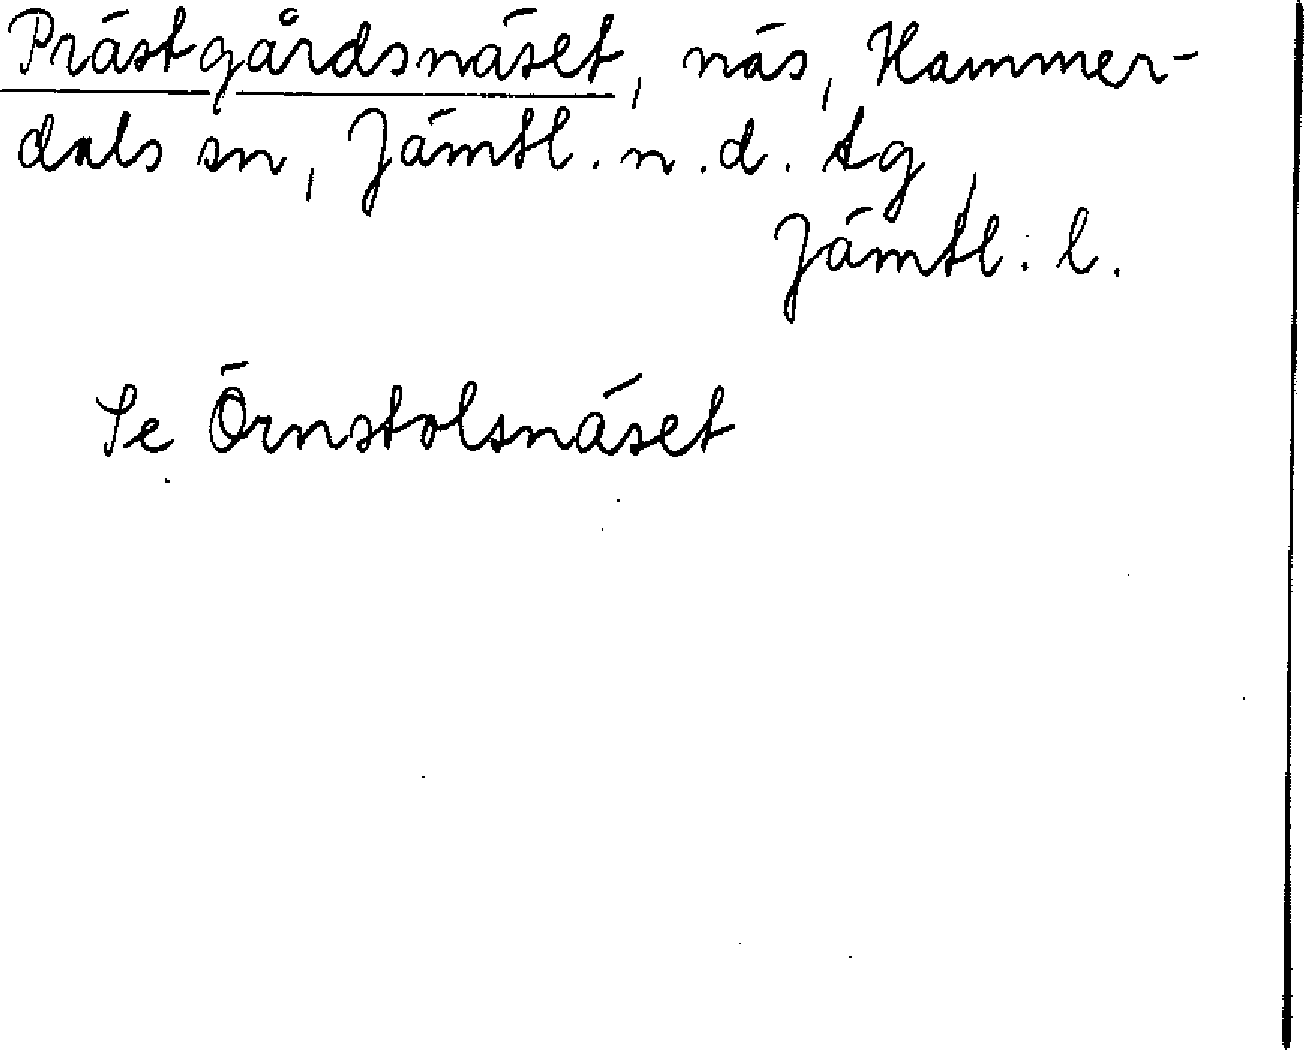 Prästgårdsnäset, näs, Hammer-
dals sn, Jämtl. n. d. tg,
Jämtl. l.
Se Örnstolsnäset